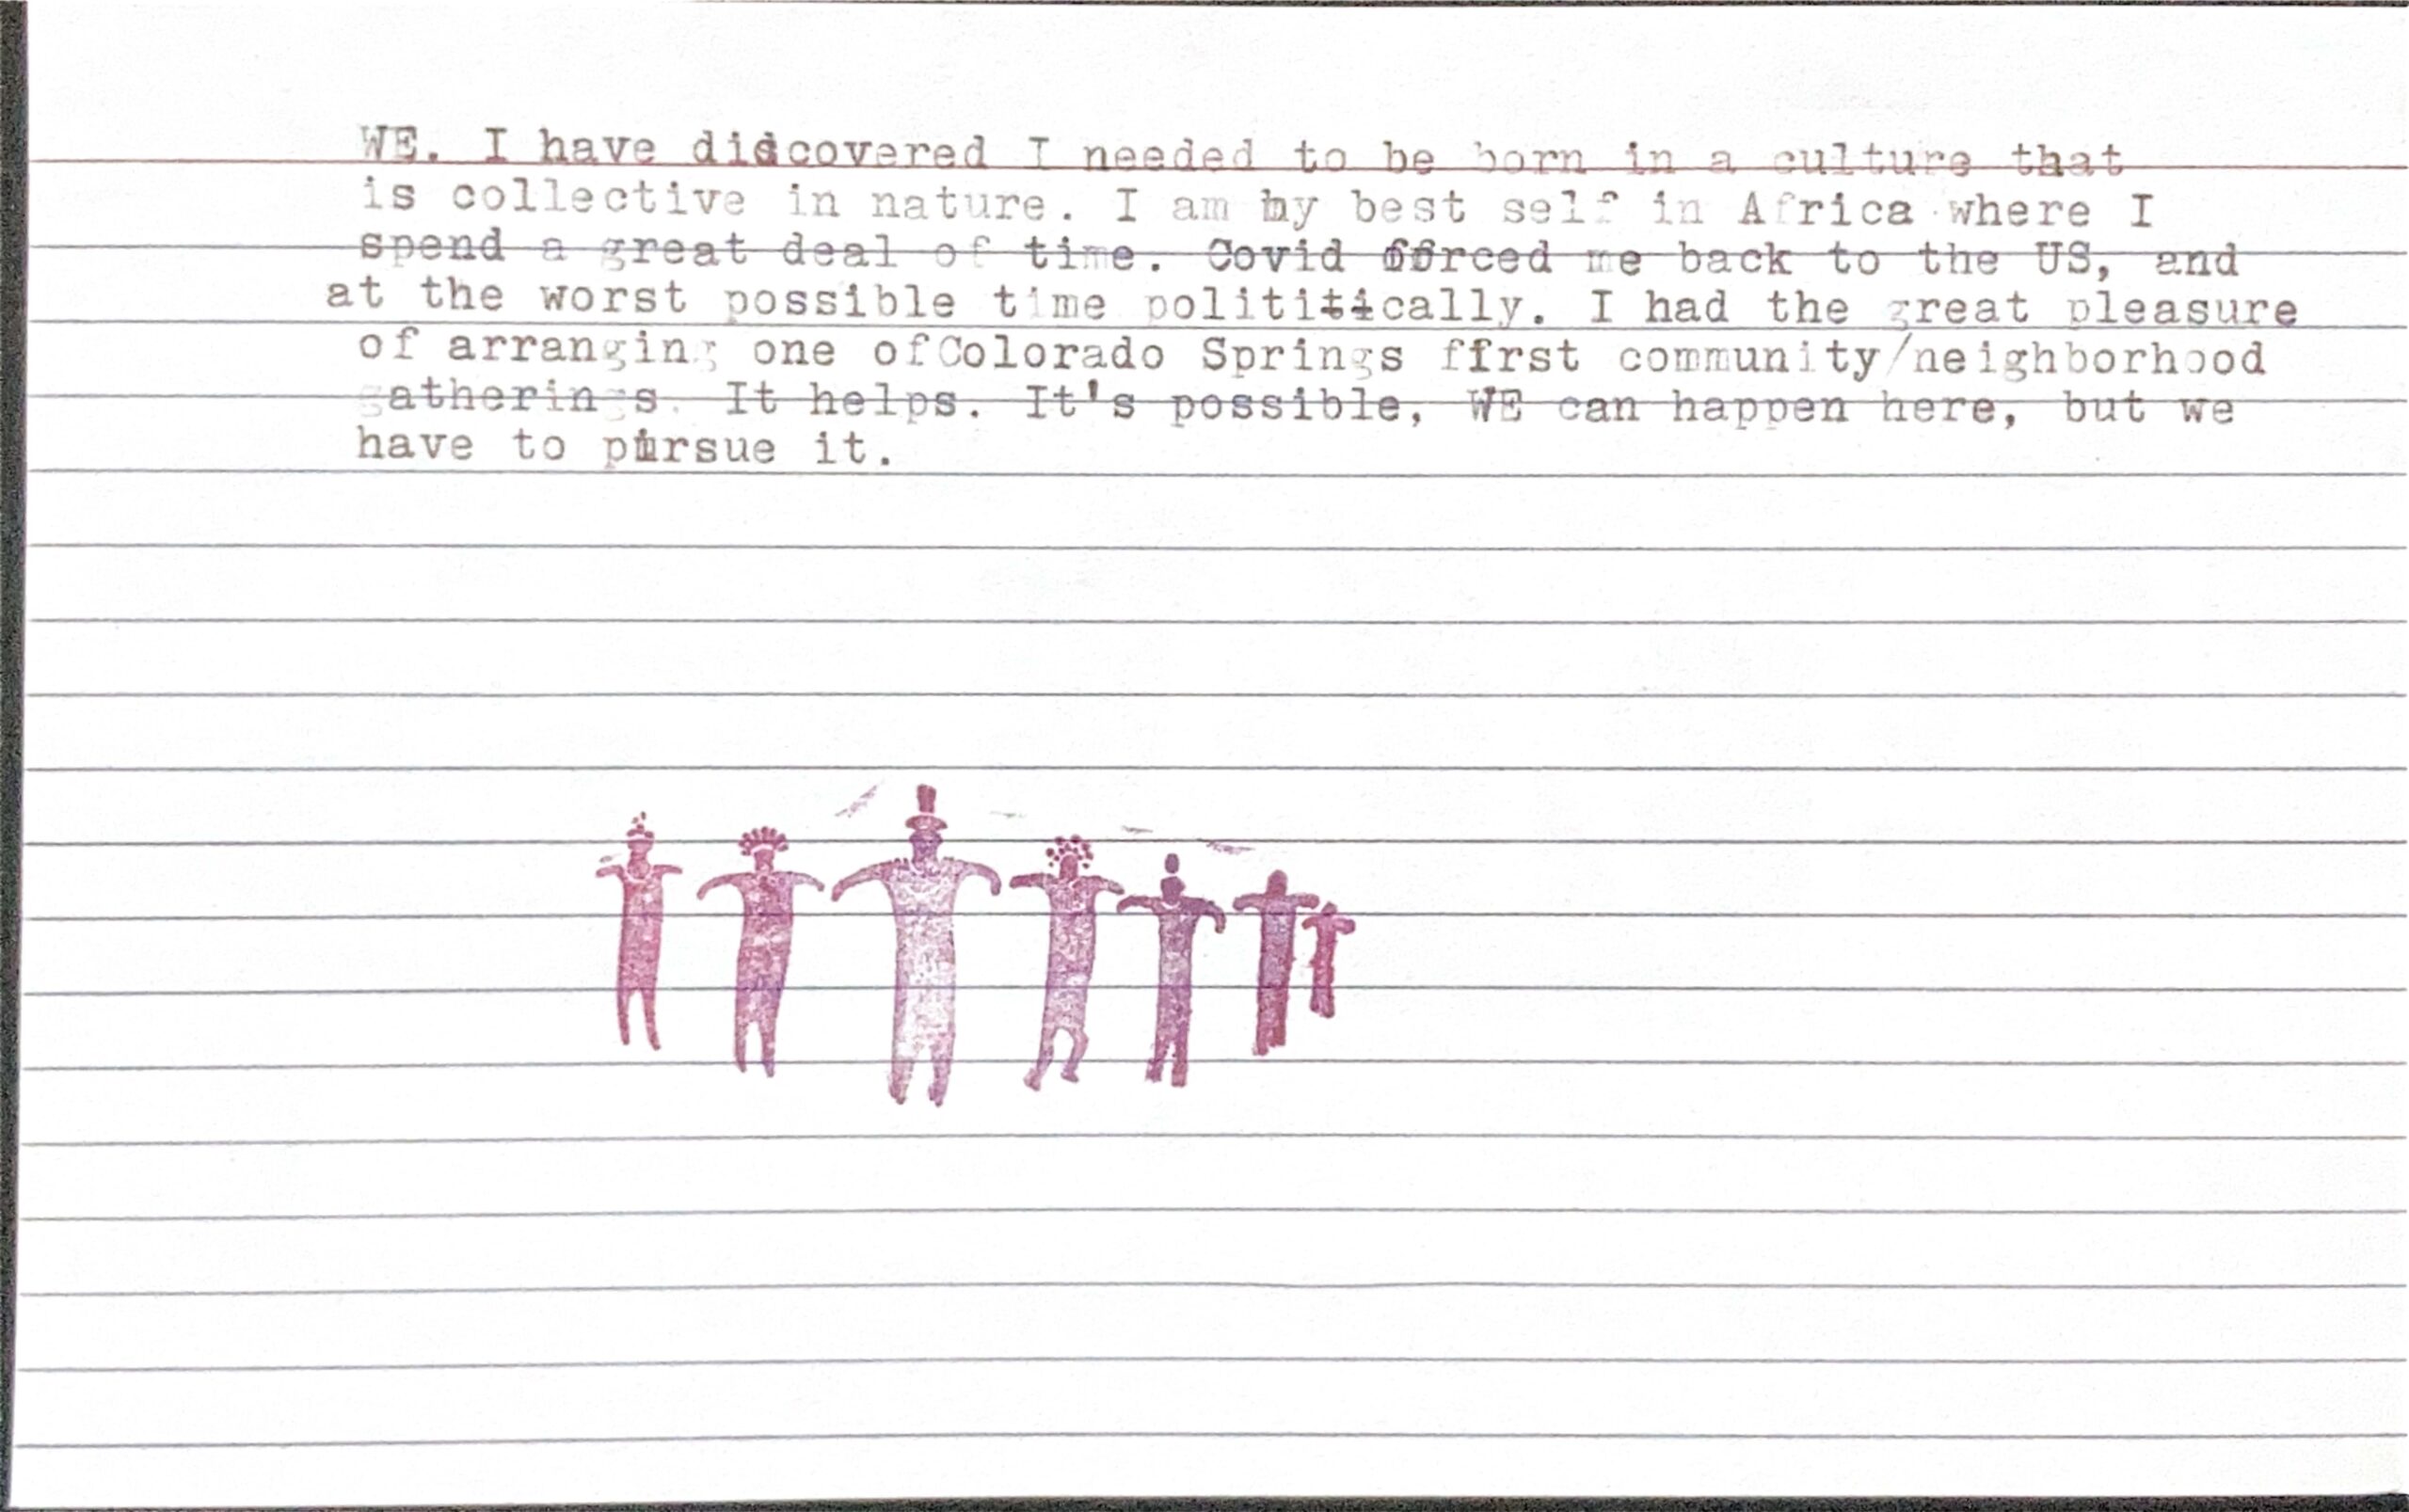 WE. I have discovered I needed to be born in a culture that
is collective in nature. I am my best self in Africa where I
spend a great deal of time. Covid forced me back to the US, and
at the worst possible time polititically. I had the great pleasure
of arranging one ofColorado Springs first community/neighborhood
gatherings. It helps. It's possible, WE can happen here, but we
have to pursue it.